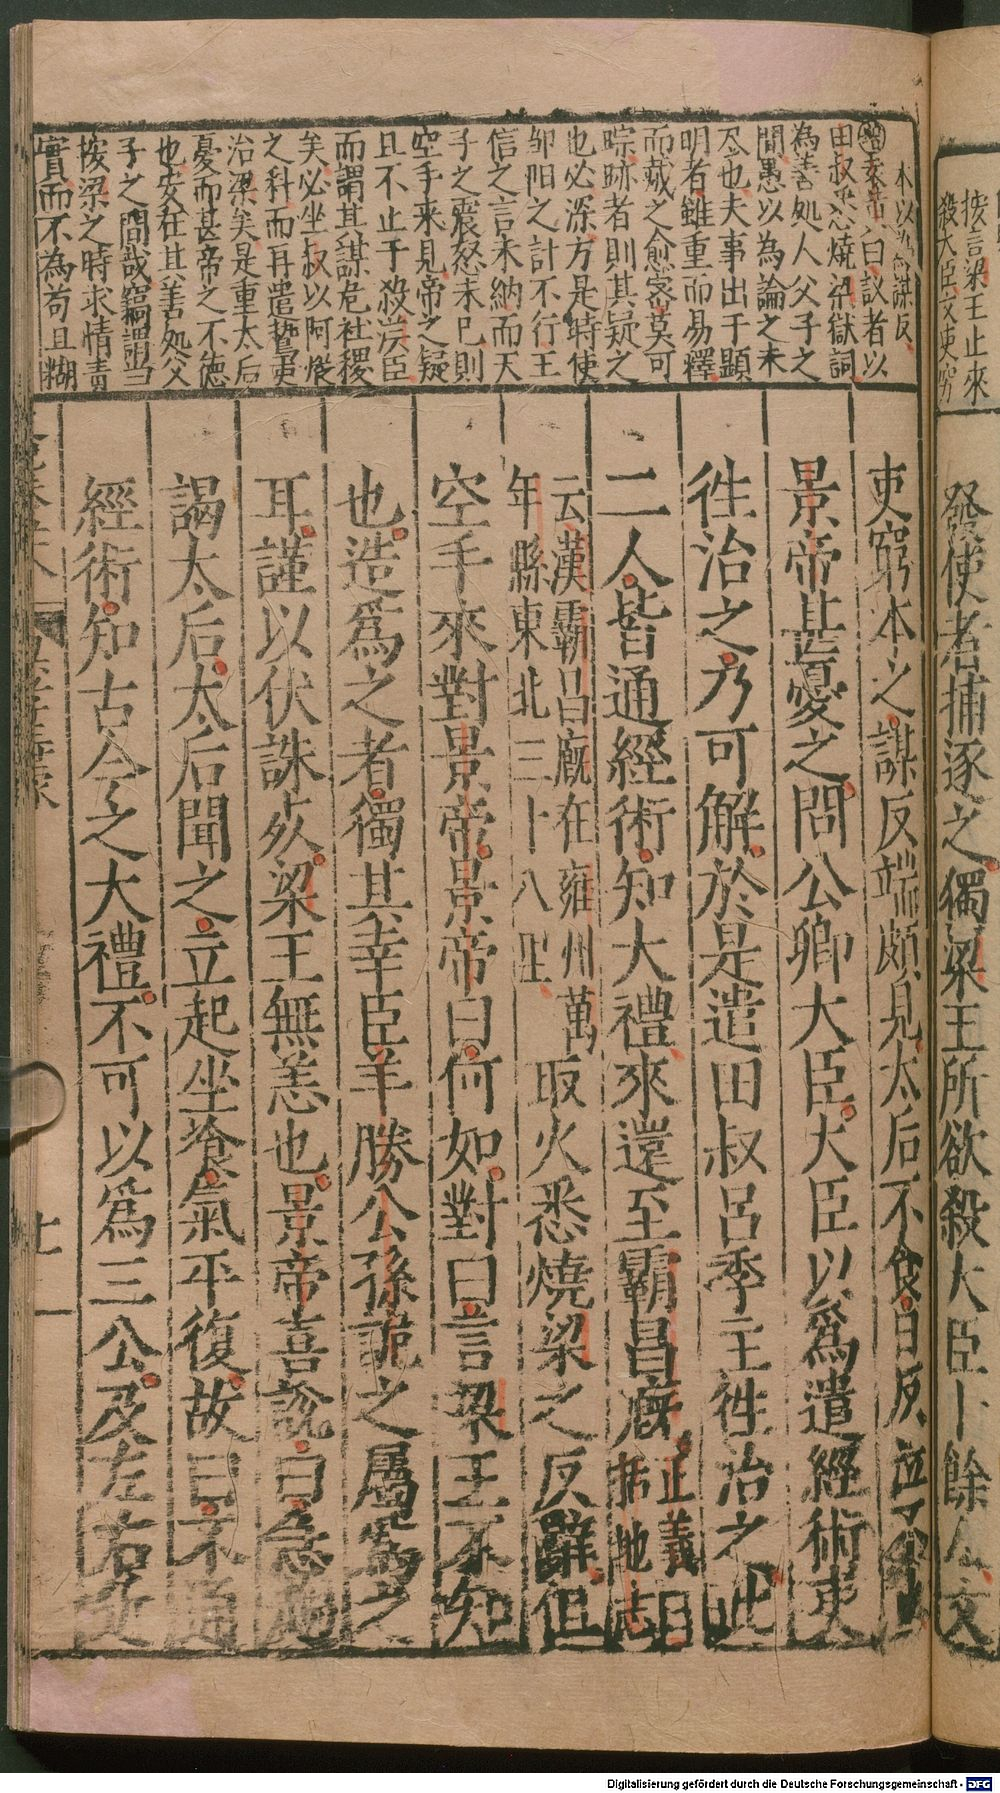 按言梁王止來
殺大臣文吏窮
發使者捕逐之獨梁王所欲殺大臣十餘人文
本以為謀反
曰議者以
田叔悉燒梁獄詞
為善処人父子之
間愚以為論之未
尽也夫事出于顯
明者雖重而易釋
而蔵之愈宻莫可
踪跡者則其疑之
也必深方是時使
邹阳之計不行王
信之言未納而天
子之震怒未已則
空手来見帝之疑
且不止于殺汉臣
而謂其謀危社稷
矣必坐叔以阿縱
之科而再遣蟄吏
治梁矣是重太后
憂而甚帝之不德
也安在其善処父
子之間哉竊謂當
按梁之時求情責
實而不為苟且糊
吏窮本之謀反端頗見太后不食日夜泣不止
景帝甚憂之問公卿大臣大臣以爲遣經術吏
徃治之乃可解於是遣田叔呂季主徃治之此
二人皆通經術知大禮來還至霸昌廐正義曰括地志
云漢霸昌廐在雍州萬
年縣東北三十八里
取火悉燒梁之反辭但
空手來對景帝景帝曰何如對曰言梁王不知
也造爲之者獨其幸臣羊勝公孫詭之屬爲之
耳謹以伏誅死梁王無恙也景帝喜說曰急趨
謁太后太后聞之立起坐飡氣平復故曰不通
經術知古今之大禮不可以爲三公及左右近
Digitalisierung gefördert durch die Deutsche Forschungsgemeinschaft - DFG